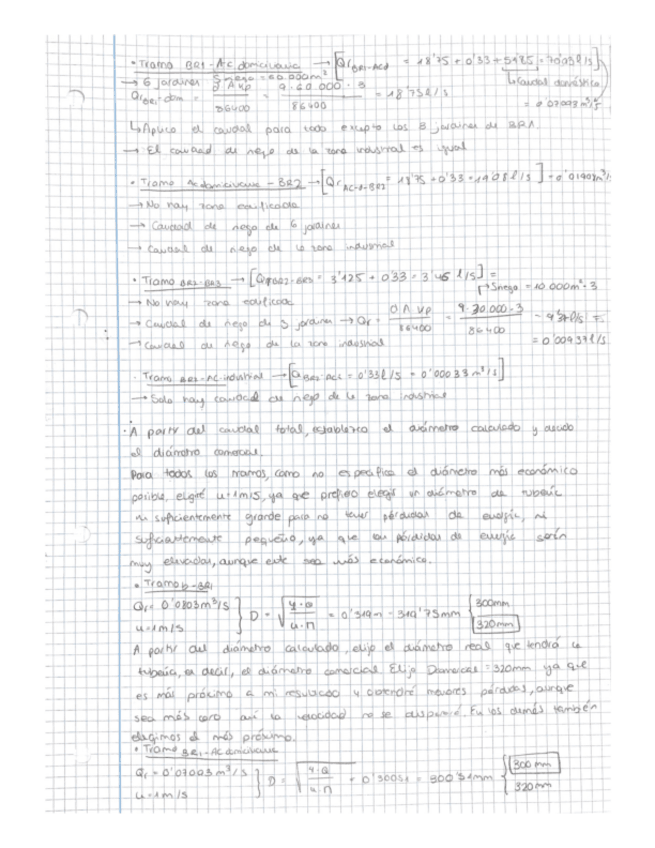 • Tramo BR1-Ac.domiciliaria → [Qr BR1-ACd = 18'75 + 0'33 + 51'85 = 70'93 l/s]
→ 6 jardines Sriego = 60.000m²
Qr BR1-dom = D A Vp / 86400 = 9·60.000·3 / 86400 = 18'75 l/s
↳ Caudal doméstico
= 0'07093 m³/s
↳ Aplico el caudal para todo excepto los 8 jardines de BR1
→ El caudal de riego de la zona industrial es igual
• Tramo Ac domiciliaria - BR2 → [Qr AC-d-BR2 = 18'75 + 0'33 = 19'08 l/s] = 0'01908 m³/s
→ No hay zona edificada
→ Caudal de riego de 6 jardines
→ Caudal de riego de la zona industrial
• Tramo BR2-BR3 → [Qr BR2-BR3 = 3'125 + 0'33 = 3'45 l/s] =
↱ Sriego = 10.000m²·3
→ No hay zona edificada
→ Caudal de riego de 3 jardines → Qr = D A Vp / 86400 = 9·30.000·3 / 86400 = 9'37 l/s =
= 0'00937 l/s
→ Caudal de riego de la zona industrial
· Tramo BR3-AC industrial → [Q BR3-ACi = 0'33 l/s = 0'00033 m³/s]
→ Solo hay caudal de riego de la zona industrial
• A partir del caudal total, establezco el diámetro calculado y acudo
el diámetro comercial.
Para todos los tramos, como no especifica el diámetro más económico
posible, elegiré u=1m/s, ya que prefiero elegir un diámetro de tubería
ni suficientemente grande para no tener pérdidas de energía, ni
suficientemente pequeño, ya que las pérdidas de energía serían
muy elevadas, aunque este sea más económico.
• Tramo D-BR1
Qr = 0'0803 m³/s
u = 1 m/s
D = √(4·Q / u·π) = 0'319 m = 319'75mm
300mm
320mm
A partir del diámetro calculado, elijo el diámetro real que tendrá la
tubería, es decir, el diámetro comercial. Elijo Dcomercial = 320mm ya que
es más próximo a mi resultado y obtendré menores pérdidas, aunque
sea más caro así la velocidad no se disparará. En los demás también
elegimos el más próximo.
• Tramo BR1-AC domiciliaria
Qr = 0'07093 m³/s
u = 1 m/s
D = √(4·Q / u·π) = 0'30051 = 300'51mm
300 mm
320mm